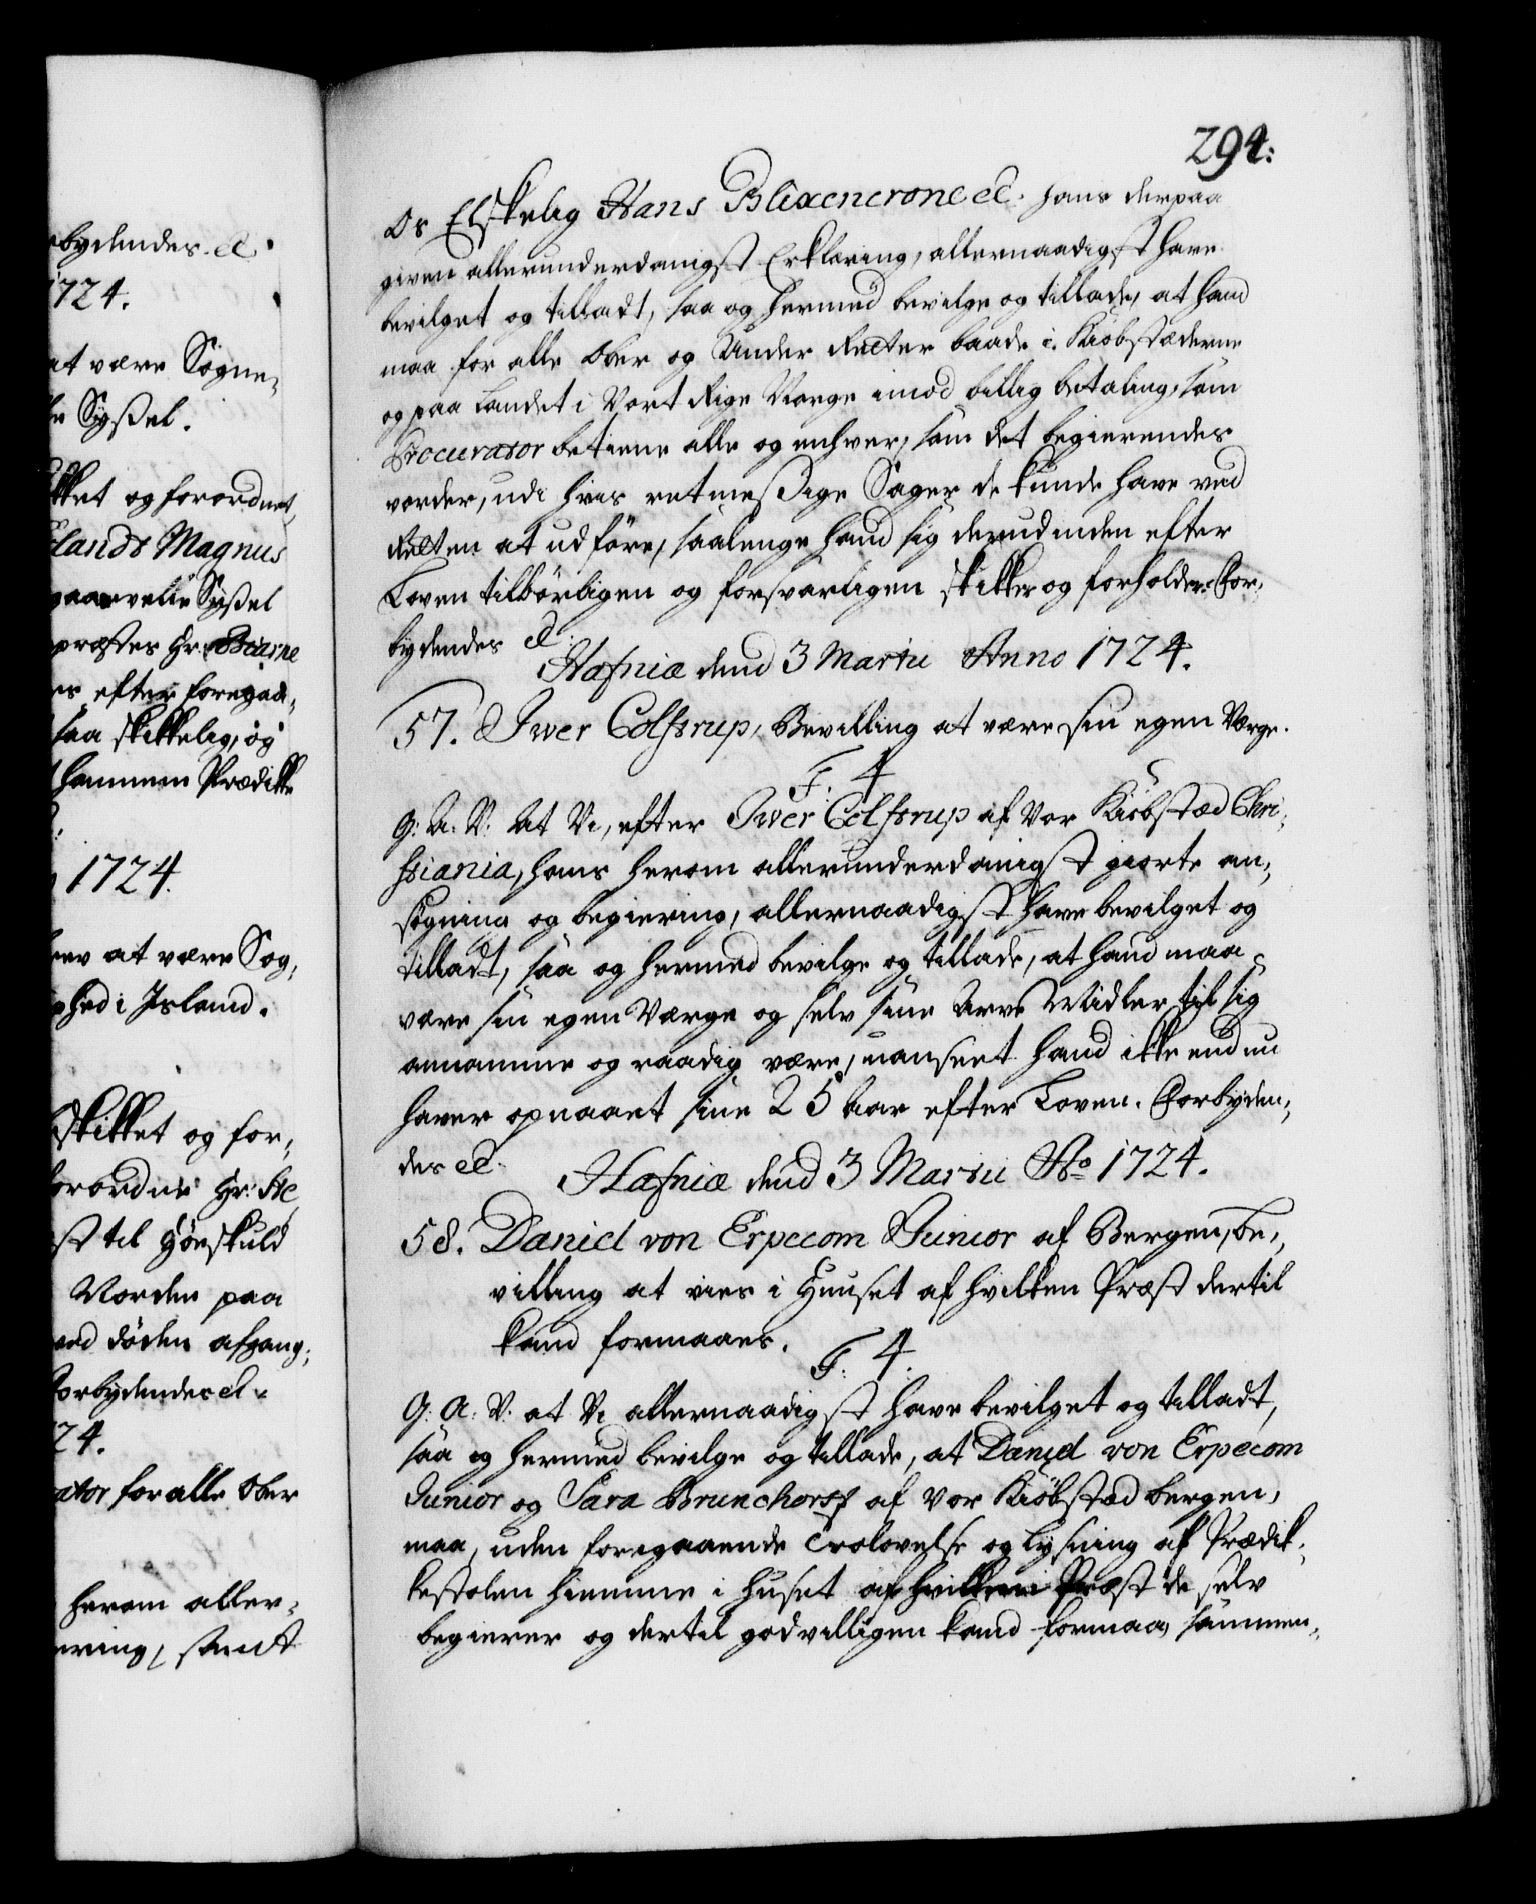 bydendes. &c.
1724.
at være Sogne-
Syßel.
kket og forordnet,
Elands Magnus
vaarvelie Syßel
præstes Hr. Biarne
es efter foregaa-
saa skikkelig, og
hammem Prædikke
1724.
rev at være Sog-
hed i Island.
skikket og for-
forordner Hr: He
st til Hönskuld
Norden paa
ved döden afgang;
Forbydendes &c.
24.
rator for alle Ober
herom aller-
ering, samt
294:
Os Elskelig Hans Blixencrone &c. hans derpaa
given allerunderdanigst Erklæring, allernaadigst have
bevilget og tilladt, saa og hermed bevilge og tillade, at hand
maa for alle Ober og Under Retter baade i Kiöbstæderne
og paa Landet i Vort Rige Norge imod billig betaling, som
Procurator betiene alle og enhver, som det begierendes
vorder, udi hvis retmeßige Sager de kunde have ved
Retten at udföre, saalenge hand sig derudinden efter
Loven tilbörligen og forsvarligen skikker og forholder. For-
bydendes &c.
Hafniæ dend 3 Martii Anno 1724.
57. Iwer Colstrup, Bevilling at være sin egen Værge.
F. 4
G: A: V: At Vi, efter Iwer Colstrup af Vor Kiöbstæd Chri-
stiania, hans herom allerunderdanigst giorte an-
sögning og begiering, allernaadigst have bevilget og
tilladt, saa og hermed bevilge og tillade, at hand maa
være sin egen Værge og selv sine Arve Midler til sig
annamme og raadig være, uanseet hand ikke endnu
haver opnaaet sine 25 Aar efter Loven. Forbyden-
des &c.
Hafniæ dend 3 Martii Ao 1724.
58. Daniel von Erpecom Junior af Bergen, be-
villing at vies i Huuset af hvilken Præst dertil
kand formaaes.
F: 4.
G: A: V: at Vi allernaadigst have bevilget og tilladt,
saa og hermed bevilge og tillade, at Daniel von Erpecom
Junior og Sara Brunchorst af Vor Kiöbstæd Bergen,
maa, uden foregaaende Trolovelse og Lysning af Prædik-
kestolen hiemme i Huset af hvilken Præst de selv
begierer og dertil godvilligen kand formaa, sammen-